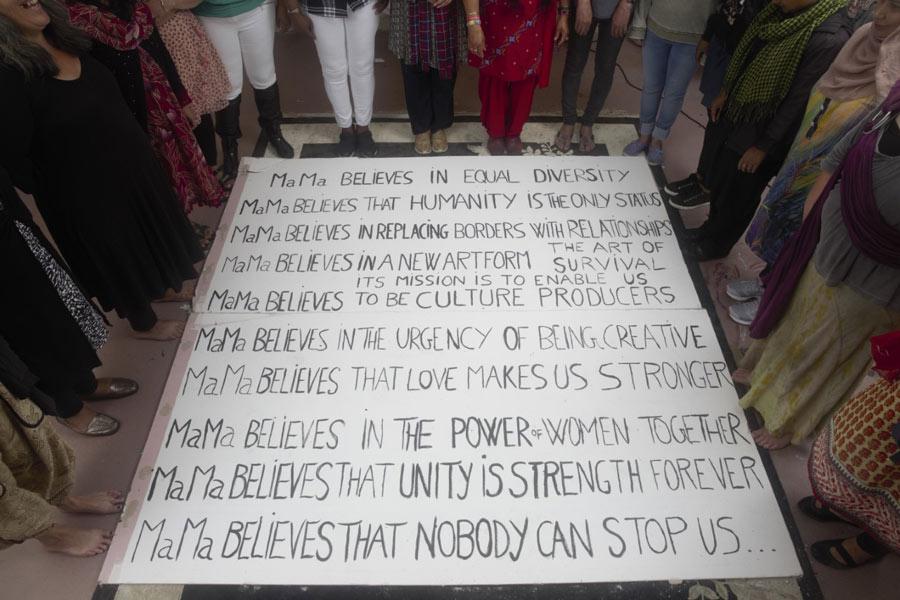 MaMa BELiEVES iN EQUAL DiVERSiTY
MaMa BELiEVES THAT HUMANiTY iS THE ONLY STATUS
MaMa BELiEVES iN REPLACiNG BORDERS WiTH RELATiONSHiPS
MaMa BELiEVES iN A NEW ART FORM THE ART OF SURViVAL
iTS MiSSiON iS TO ENABLE US
MaMa BELiEVES TO BE CULTURE PRODUCERS
MaMa BELiEVES iN THE URGENCY OF BEiNG CREATiVE
MaMa BELiEVES THAT LOVE MAKES US STRONGER
MaMa BELiEVES iN THE POWER OF WOMEN TOGETHER
MaMa BELiEVES THAT UNiTY iS STRENGTH FOREVER
MaMa BELiEVES THAT NOBODY CAN STOP US...